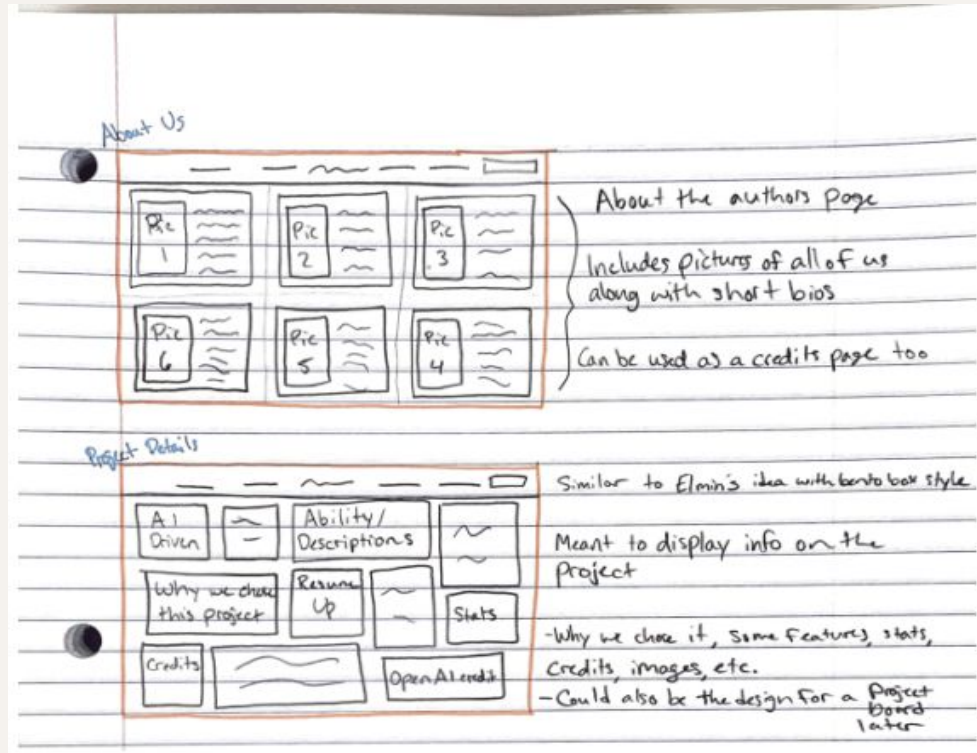 About Us
Pic
1
Pic
2
Pic
3
Pic
6
Pic
5
Pic
4
About the authors page
Includes pictures of all of us
along with short bios
Can be used as a credits page too
Project Details
AI
Driven
Ability/
Descriptions
Why we chose
this project
Resume
Up
Stats
Credits
Open AI credit
Similar to Elmin's idea with bento box style
Meant to display info on the
project
-Why we chose it, some features, stats,
credits, images, etc.
-Could also be the design for a Project
board
later